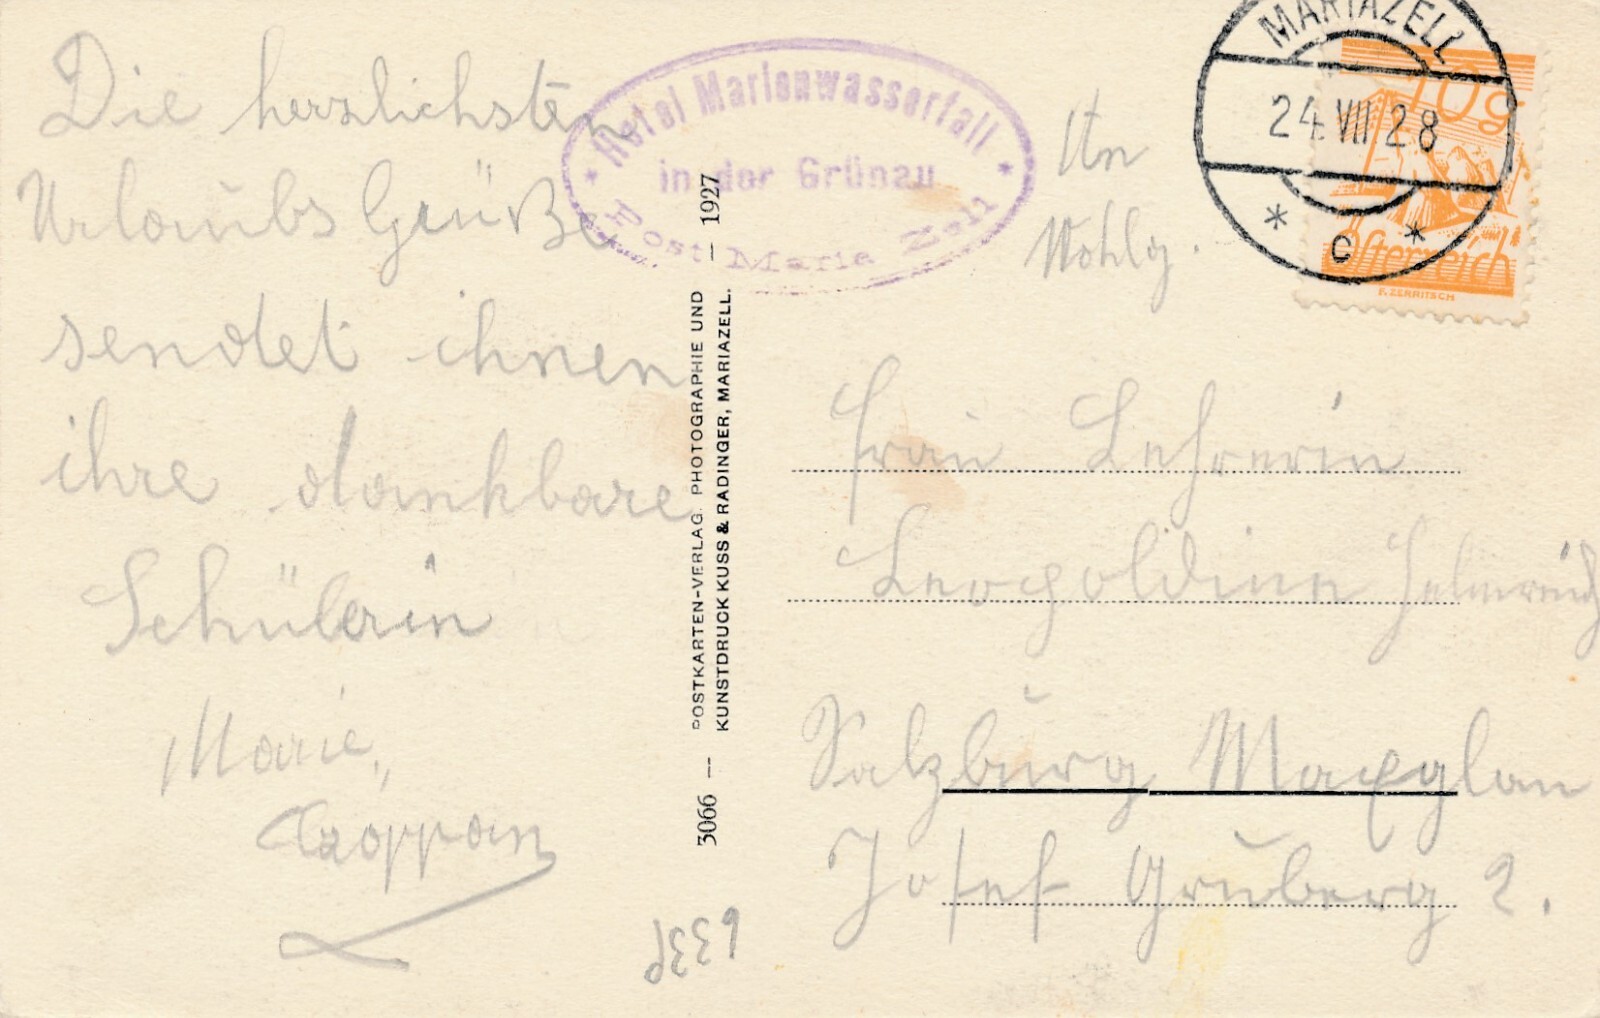 Die herzlichsten
Urlaubs Grüße
sendet ihnen
ihre dankbare
Schülerin
Marie
Hotel Marienwasserfall
in der Grünau
Post Maria Zell
3066 — POSTKARTEN-VERLAG, PHOTOGRAPHIE UND — 1927
KUNSTDRUCK KUSS & RADINGER, MARIAZELL.
MARIAZELL
24.VII 28
* C *
10g
Österreich
F. ZERRITSCH
An
Wohlg.
Frau Lehrerin
Leopoldine Helmreich
Salzburg Maxglan
Josef Gruberg 2.